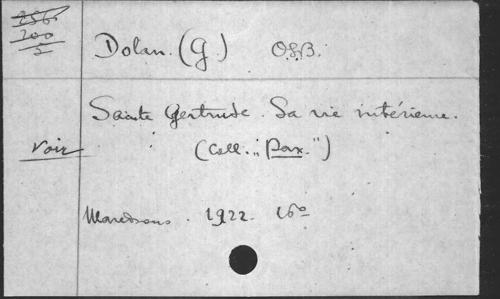 256
200
5
Dolan. (G.) O.S.B.
Sainte Gertrude. Sa vie intérieure.
voir
(Coll. „Pax.")
Maredsous. 1922. 16º